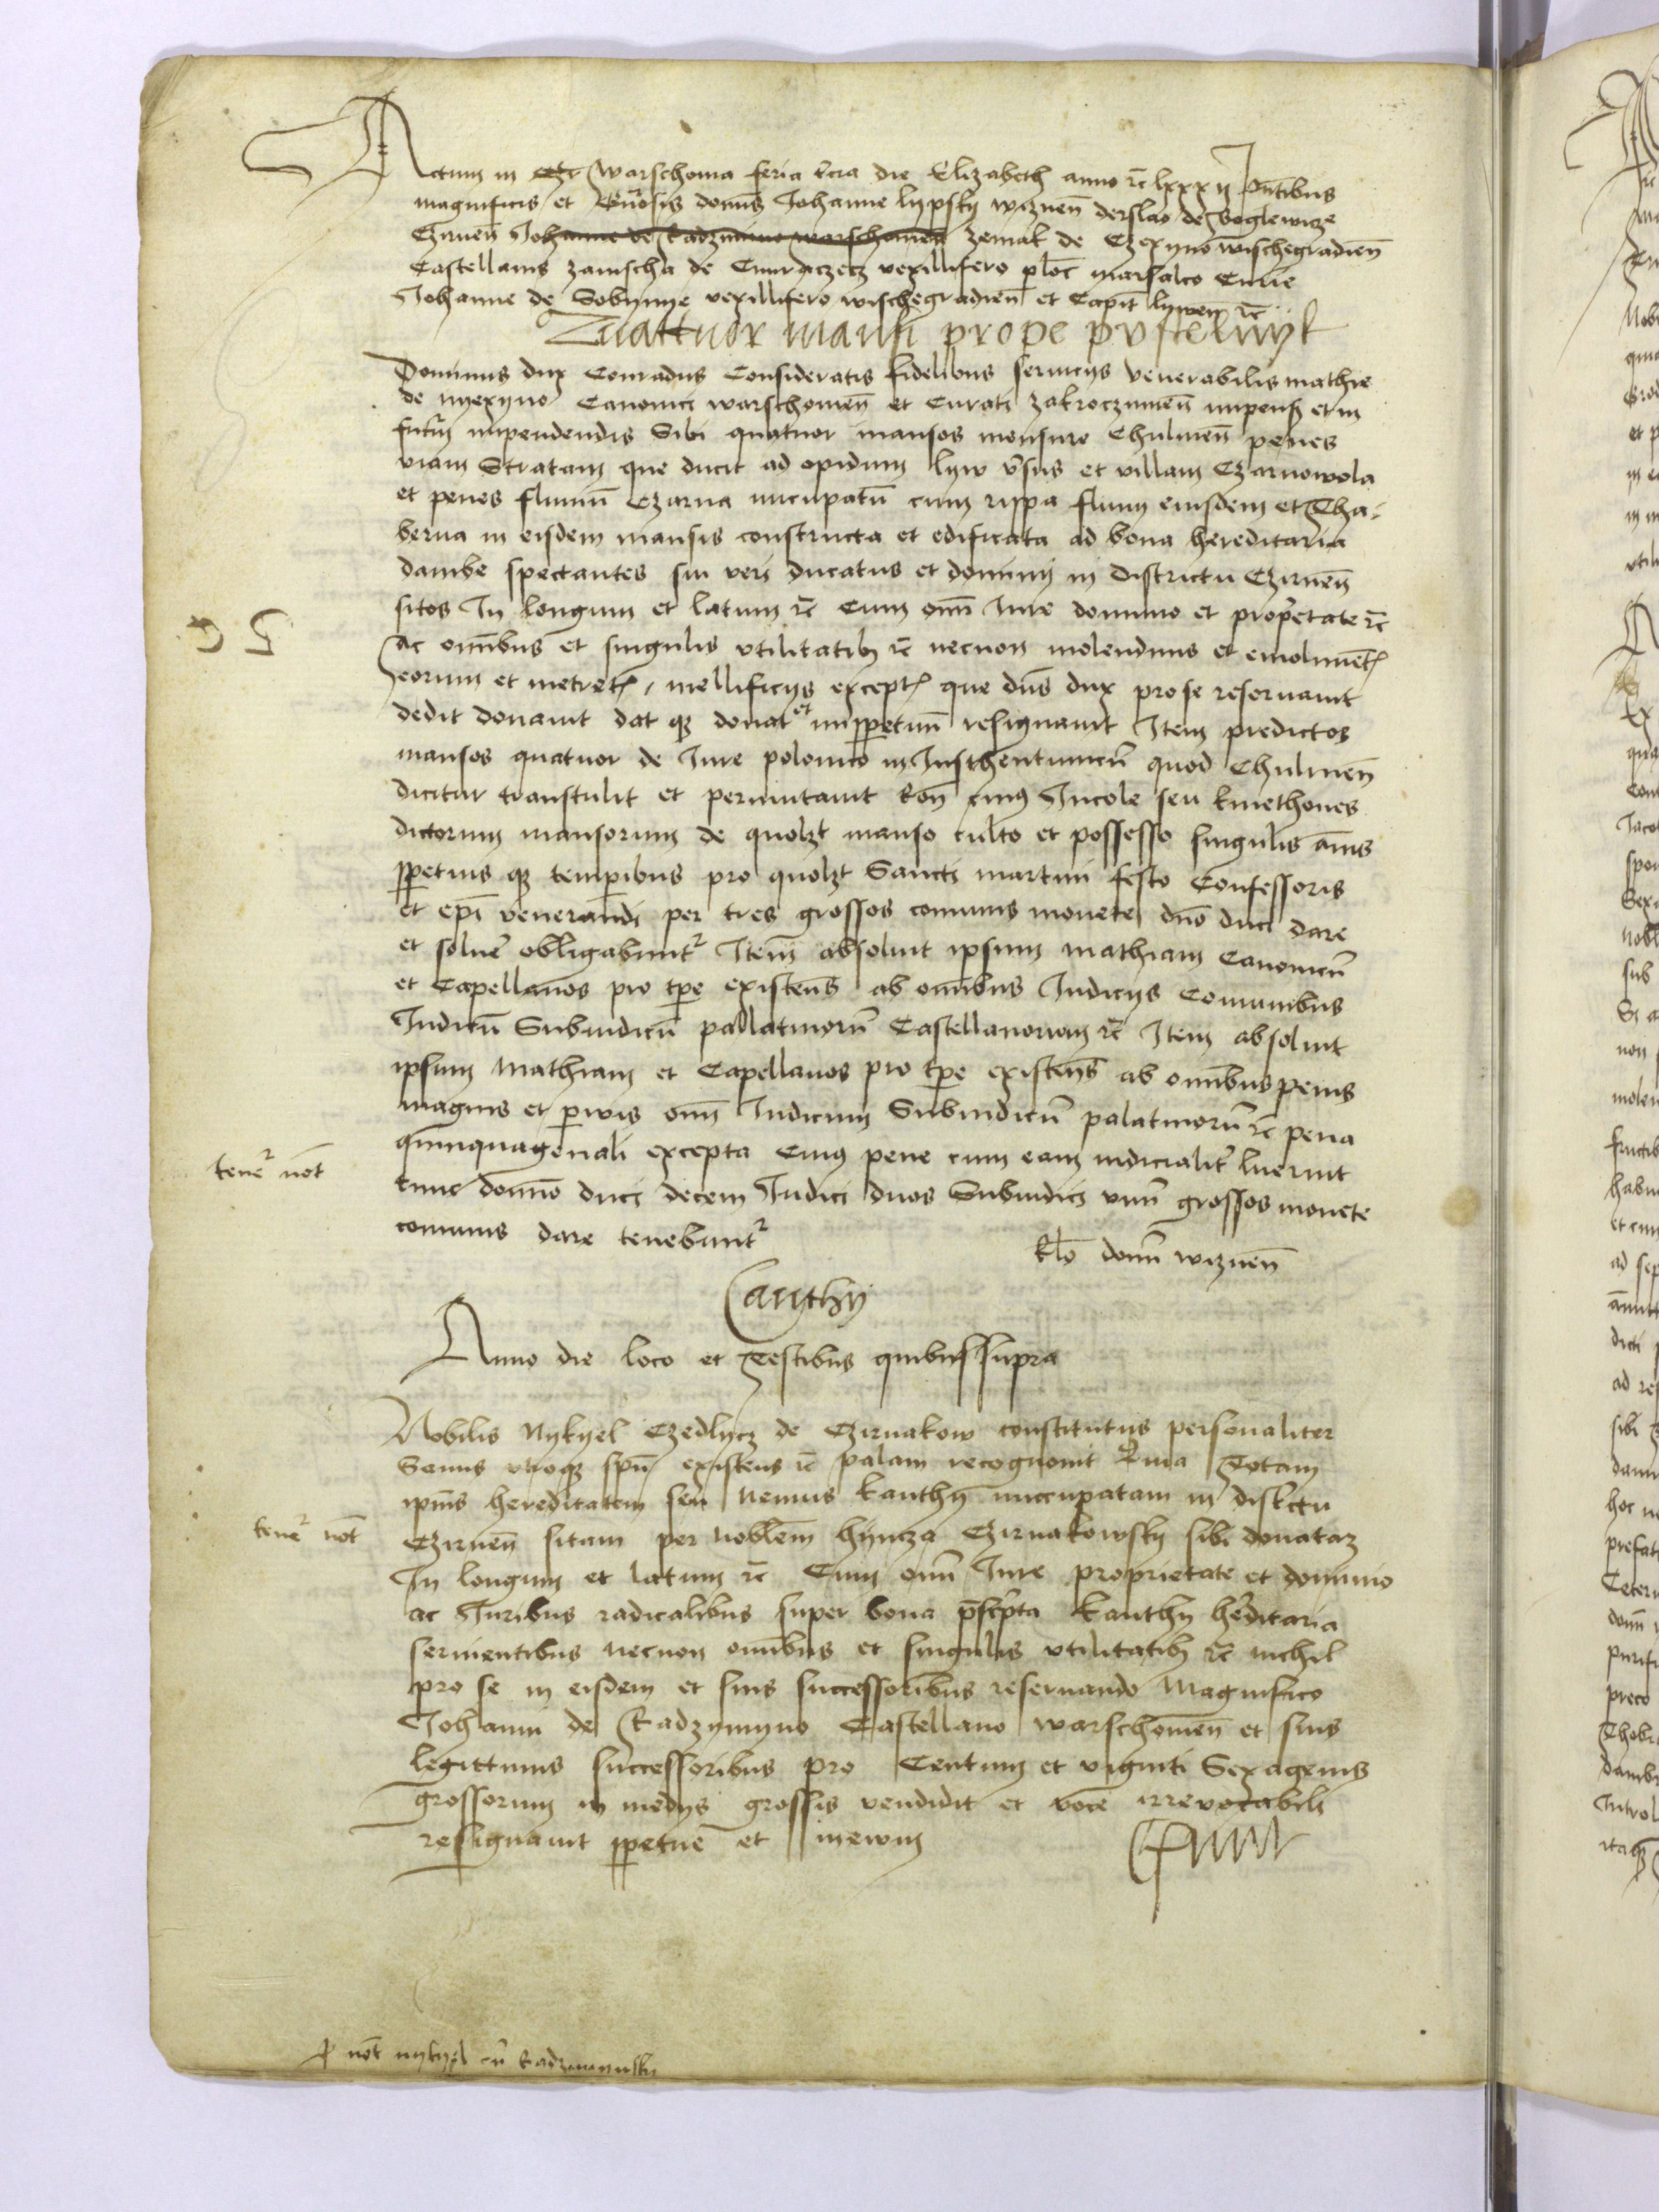 Actum in Czr Warschowia feria tercia die Elizabeth anno rc lxxxij Pntibus
magnificis et Gnrosis domis Johanne lypsky wiznen derslao de Boglewicze
Czirnen Johanne de Radzimino warschowien zemak de Czexyno wischegradien
Castellanis zamscha de Cmraczecz vexillifero ploc marsalco Curie
Johanne de Sobynye vexillifero wischegradien et Capit lywen rc
Quattuor mansi prope pustelnyk
Dominus dux Conradus Consideratis fidelibus seruicijs venerabilis mathie
de nyexyno Canonici warschouien et Curati zakroczimen impensis et in
futurum impendendis Sibi quatuor mansos mensure Chulmen penes
viam Stratam que ducit ad opidum lyw vsus et villam Czarnowola
et penes fluuium Czarna nuncupatum cum rippa fluuij eiusdem et Tha-
berna in eisdem mansis constructa et edificata ad bona hereditaria
dambe spectantes sui veri ducatus et dominij in districtu Czirnen
sitos In longum et latum rc cum omni Iure dominio et proprietate rc
ac omnibus et singulis vtilitatibus rc necnon molendinis et emolumentis
eorum et metretis, mellificijs exceptis que dns dux pro se reseruauit
dedit donauit dat que donat et imperpetuum resignauit Item predictos
mansos quatuor de Iure polonico in Iusthentunicum quod Chulmen
dicitur transtulit et permutauit Ron cuius Incole seu kmethones
dictorum mansorum de quolibet manso culto et possesso singulis annis
perpetuis que temporibus pro quolibet Sancti martini festo Confessoris
et epi venerandi per tres grossos comunis monete dno duci dare
et soluere obligabuntur Item absoluit ipsum mathiam Canonicum
et Capellanos pro tpe existens ab omnibus Iudicijs Comunibus
Iudicum Subiudicum pallatinorum Castellanorum rc Item absoluit
ipsum Mathiam et Capellanos pro tpe existens ab omnibus penis
magnis et paruis omni Iudicum Subiudicum palatinorum rc pena
quinquagenali excepta Cuius pene cum eam iudicialiter luerint
tunc domino duci decem Iudici duos Subiudici vnum grossos monete
comunis dare tenebuntur
tenetur not
Rlo domi wiznen
Canthy
Anno die loco et Testibus quibussupra
Nobilis Nykyel Czedlycz de Czirnakow constitutus personaliter
Sanus vtroque spu existens rc palam recognouit Quia Totam
ipsius hereditatem seu nemus kanthy nuccupatam in districtu
tenetur not
Czirnen sitam per noblem hyncza Czirnakowsky sibi donatam
In longum et latum rc Cum omni Iure proprietate et dominio
ac Iuribus radicalibus super bona pscripta kanthy hereditaria
seruientibus necnon omnibus et singulis vtilitatibus rc nichil
pro se in eisdem et suis successoribus reseruando Magnifico
Johanni de Radzymyno Castellano warschouien et suis
legittimis successoribus pro Centum et viginti Sexagenis
grossorum in medijs grossis vendidit et voce irrevocabili
resignauit perpetue et in ewum
not nykyel cum Radzyminsky